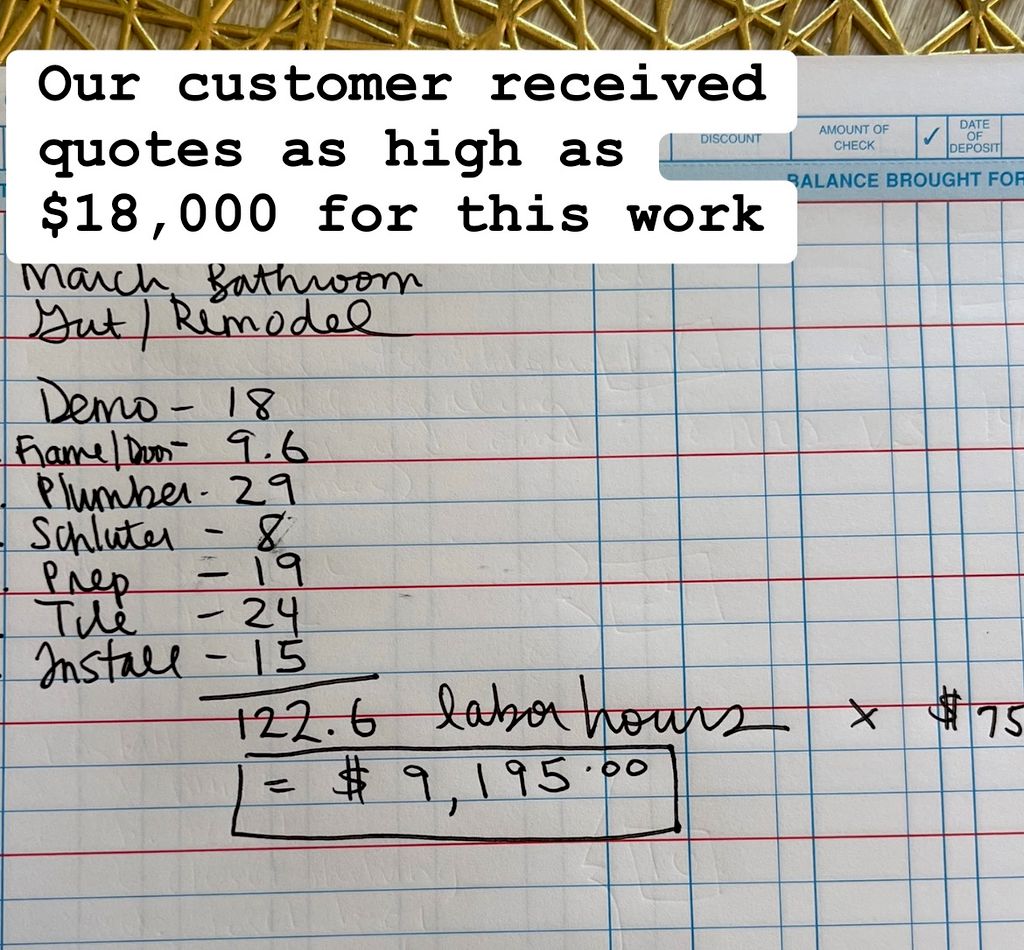 Our customer received
quotes as high as
$18,000 for this work
DISCOUNT
AMOUNT OF
CHECK
✓
DATE
OF
DEPOSIT
BALANCE BROUGHT FOR
March Bathroom
Gut / Remodel
Demo - 18
Frame/Door - 9.6
Plumber - 29
Schluter - 8
Prep - 19
Tile - 24
Install - 15
122.6 labor hours x $75
= $9,195.00